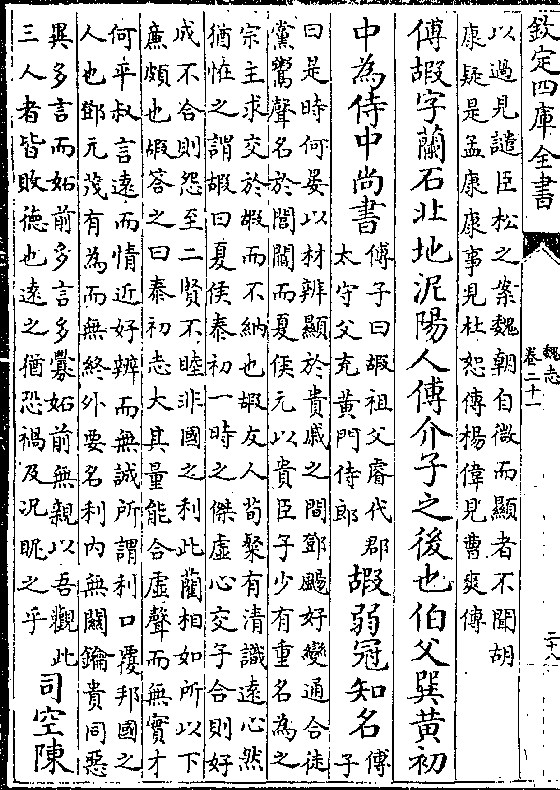 欽定四庫全書
魏志
卷二十一
二十八
以過見譴臣松之案魏朝自微而顯者不聞胡
康疑是孟康康事見杜恕傳楊偉見曹爽傳
傅嘏字蘭石北地泥陽人傅介子之後也伯父巽黃初
中為侍中尚書
傅子曰嘏祖父睿代郡
太守父充黃門侍郎
嘏弱冠知名
傅
子
曰是時何晏以材辨顯於貴戚之間鄧颺好變通合徒
黨鬻聲名於閭閻而夏侯元以貴臣子少有重名為之
宗主求交於嘏而不納也嘏友人荀粲有清識遠心然
猶怪之謂嘏曰夏侯泰初一時之傑虛心交子合則好
成不合則怨至二賢不睦非國之利此藺相如所以下
廉頗也嘏答之曰泰初志大其量能合虛聲而無實才
何平叔言遠而情近好辨而無誠所謂利口覆邦國之
人也鄧元茂有為而無終外要名利內無關鑰貴同惡
異多言而妬前多言多釁妬前無親以吾觀此
三人者皆敗德也遠之猶恐禍及況昵之乎
司空陳